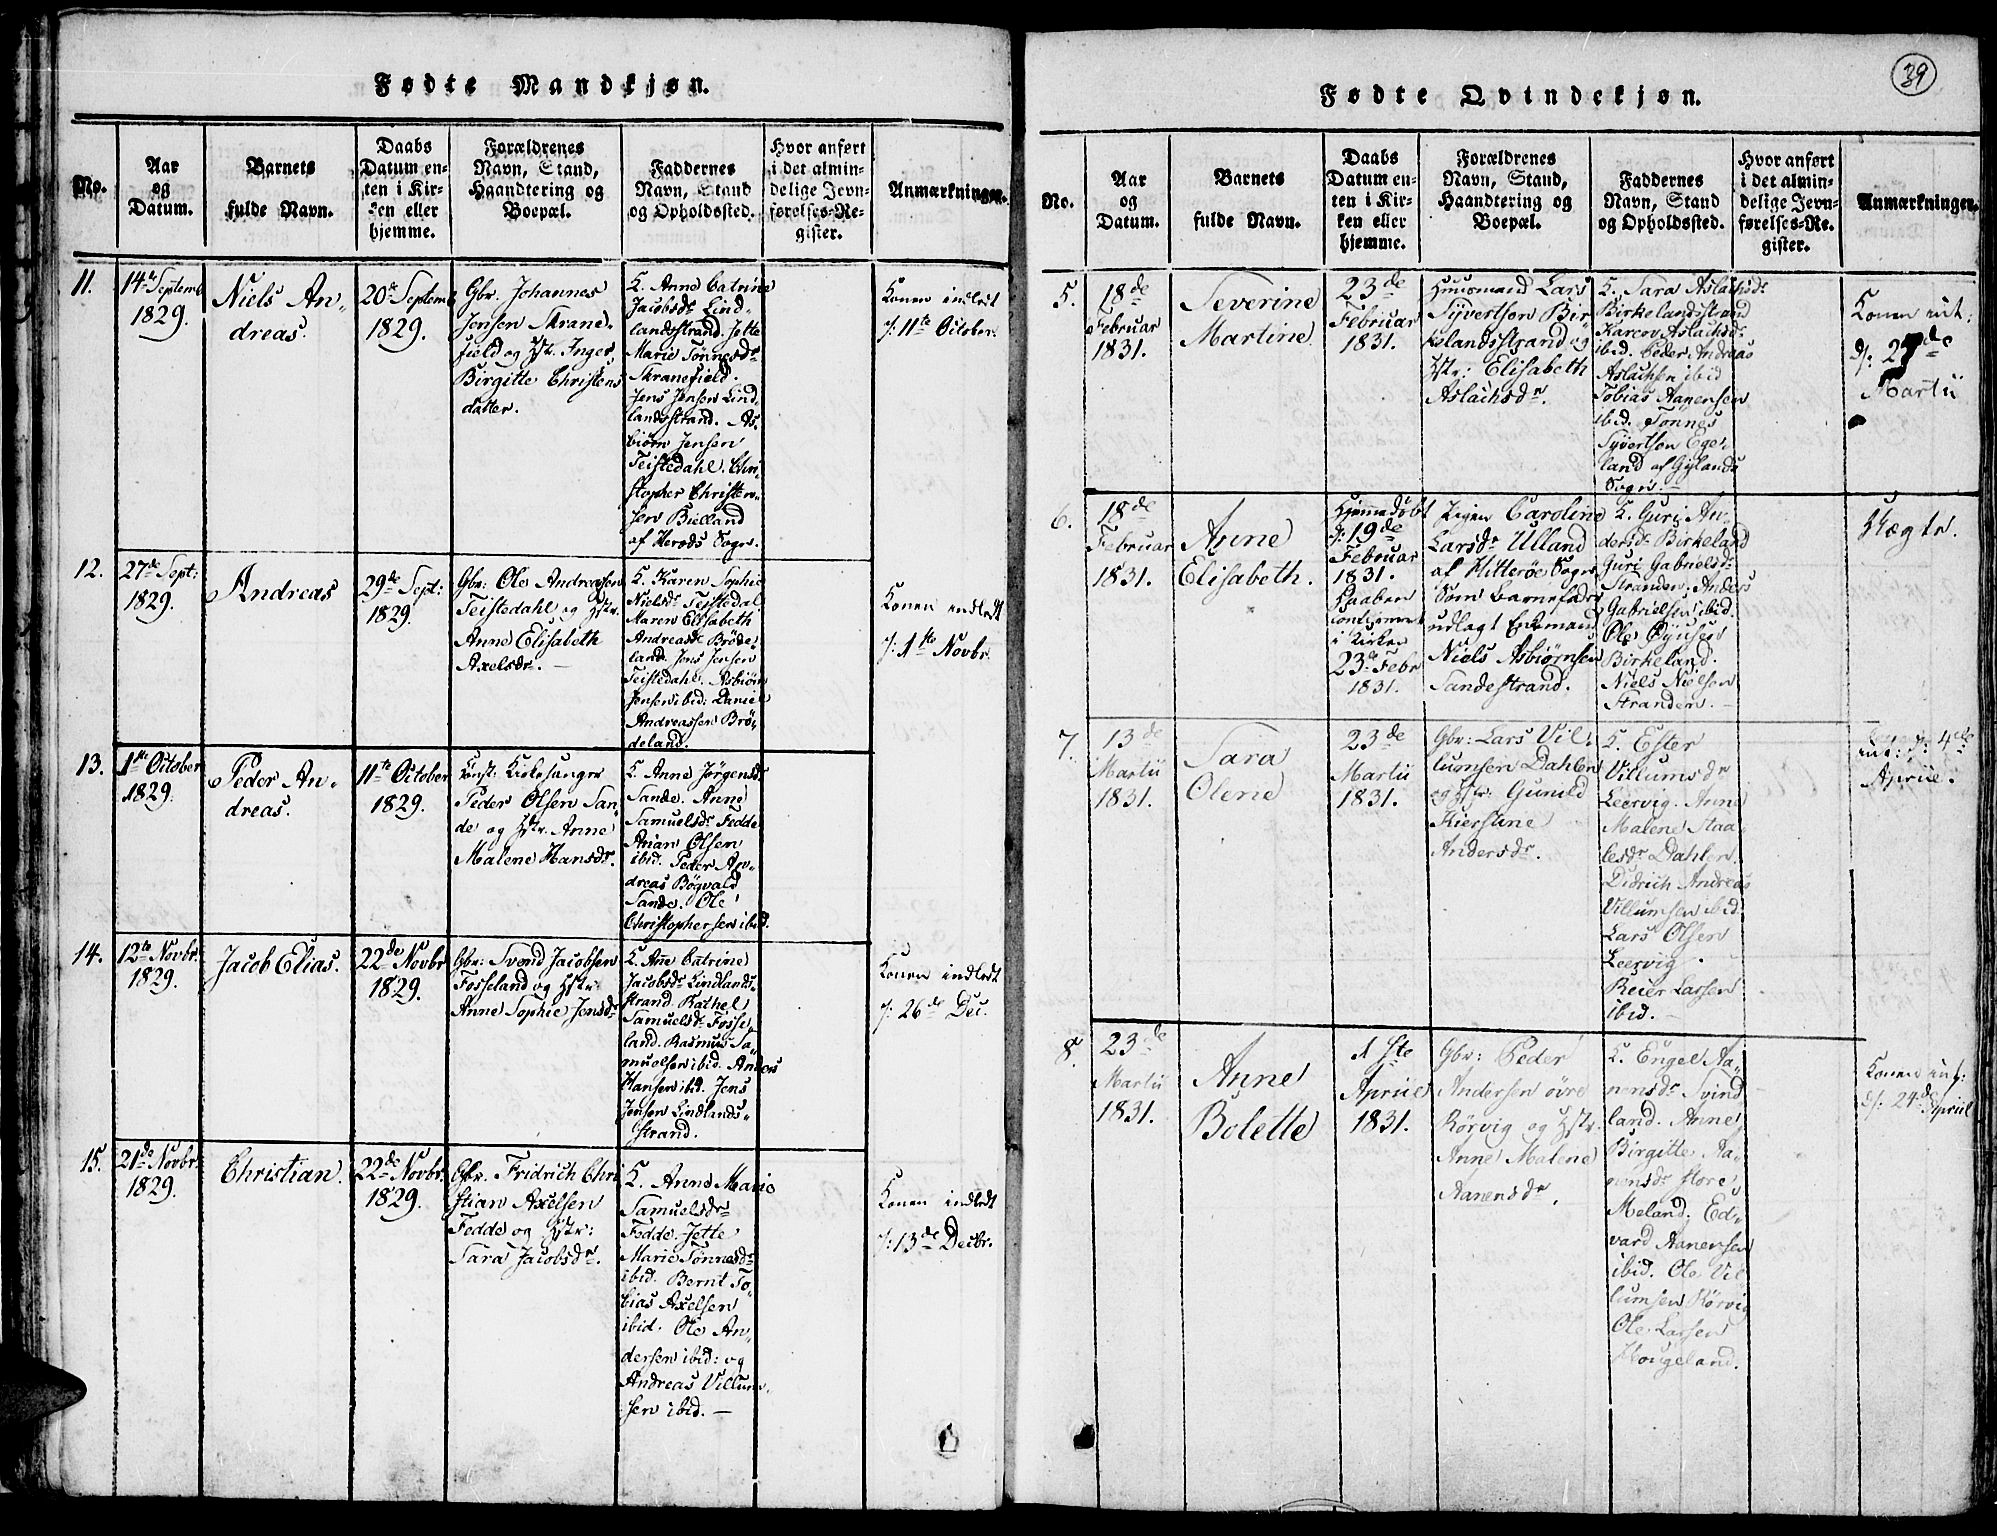 Fødte Mandkjøn.
No.
Aar
og
Datum.
Barnets
fulde Navn.
Daabs
Datum en-
ten i Kir-
ken eller
hjemme.
Forældrenes
Navn, Stand,
Haandtering og
Boepæl.
Faddernes
Navn, Stand
og Opholdssted.
Hvor anført
i det almin-
delige Jevn-
førelses-Re-
gister.
Anmærkninger.
11.
14de Septemb
1829.
Niels An-
dreas.
20de Septemb
1829.
Gbr. Johannes
Jensen Skrane-
field og Hstr. Inger
Birgitte Christens
datter.
K. Anne Catrine
Jacobsdr Lind-
landsstrand. Jette
Marie Tønnesdr
Skranefield.
Jens Jensen Lind-
landsstrand. As-
biørn Jensen
Teistedahl. Chri-
stopher Christen-
sen Bielland
af Herods Sogn.
Konen indledt
d: 11te October.
12.
27de Sept:
1829.
Andreas
29de Sept:
1829.
Gbr: Ole Andreasen
Teistedahl og Hstr.
Anne Elisabeth
Axelsdr. —
K. Karen Sophie
Nielsdr Teistedal.
Maren Elisabeth
Andreasdr Brøde-
land. Jens Jensen
Teistedahl. Asbiørn
Jensen ibid: Daniel
Andreassen Brø-
deland.
Konen indledt
d: 1ste Novbr.
13.
1ste October
1829.
Peder An-
dreas.
11te October
1829.
Const: Kirkesanger
Peder Olsen San-
de og Hstr. Anne
Malene Hansdr.
K. Anne Jørgensdr
Sande. Anne
Samuelsdr Fedde
Arian Olsen
ibid. Peder An-
dreas Bøgvald
Sande. Ole
Christophersen ibid.
14.
12te Novbr.
1829.
Jacob Elias.
22de Novbr
1829.
Gbr: Svend Jacobsen
Fosseland og Hstr
Anne Sophie Jensdr
K. Ane Catrine
Jacobsdr Lindlands-
strand. Rathel
Samuelsdr Fosse-
land. Rasmus Sa-
muelsen ibid. Anders
Hansen ibd. Jens
Jensen Lindlands-
strand.
Konen indledt
d: 26de Dec.
15.
21de Novbr.
1829.
Christian.
22de Novbr.
1829.
Gbr. Fridrich Chri
stian Axelsen
Fedde og Hstr:
Sara Jacobsdr.
K. Anne Marie
Samuelsdr
Fedde. Jette
Marie Tønnesdr
ibid. Bernt To-
bias Axelsen
ibid. Ole An-
dersen ibid: og
Andreas Villum-
sen ibid. —
Konen indledt
d: 13de Decbr.
39
Fødte Qvindekjøn.
No.
Aar
og
Datum.
Barnets
fulde Navn.
Daabs
Datum en-
ten i Kir-
ken eller
hjemme.
Forældrenes
Navn, Stand,
Haandtering og
Boepæl.
Faddernes
Navn, Stand
og Opholdssted.
Hvor anført
i det almin-
delige Jevn-
førelses-Re-
gister.
Anmærkninger.
5.
18de
Februar
1831.
Severine
Martine
23de
Februar
1831.
Huusmand Lars
Syvertsen Bir
kelandsstrand og
Hstr: Elisabeth
Aslachsdr.
K. Sara Aslachsdr
Birkelandsstrand
Karen Aslachsdr
ibid. Peder Andreas
Aslachsen ibid
Tobias Aanensen
ibid. Tønnes
Syvertsen Ege-
land af Gylands
Sogn. —
Konen int:
d: 27de
Martii
6.
18de
Februar
1831.
Anne
Elisabeth.
Hjemmedøbt
d: 19de
Februar
1831.
Daaben
confirmeret
i Kirken
23de Febr
1831.
Pigen Caroline
Larsdr Ulland
af Hitterøe Sogn
Som barnefader
udlagt Enkemand
Niels Asbiørnsen
Sandestrand.
K. Guri An-
dersdr Birkeland
Guri Gabrielsdr
Stranden. Anders
Gabrielsen ibid.
Ole Øyusen
Birkeland.
Niels Nielsen
Stranden. —
Uægte.
7.
13de
Martii
1831.
Sara
Olene
23de
Martii
1831.
Gbr: Lars Vil-
lumsen Dahlen
og Hstr. Gunild
Kierstine
Andersdr.
K. Ester
Villumsdr
Leervig. Anne
Malene Staa-
lesdr Dahlen.
Didrich Andreas
Villumsen ibid.
Lars Olsen
Leervig.
Reier Larsen
ibid. —
Konen
int: d: 4de
Apriil.
8.
23de
Martii
1831.
Anne
Bolette
1ste
Apriil
1831.
Gbr: Peder
Andersen øvre
Rørvig og Hstr.
Anne Malene
Aanensdr.
K. Engel Aa-
nensdr Svind
land. Anne
Birgitte Aa-
nensdr Store
Meland. Ed-
vard Aanensen
ibid. Ole Vil
lumsen Rørvig
Ole Larsen
Hougeland.
Konen int:
d: 24de Apriil